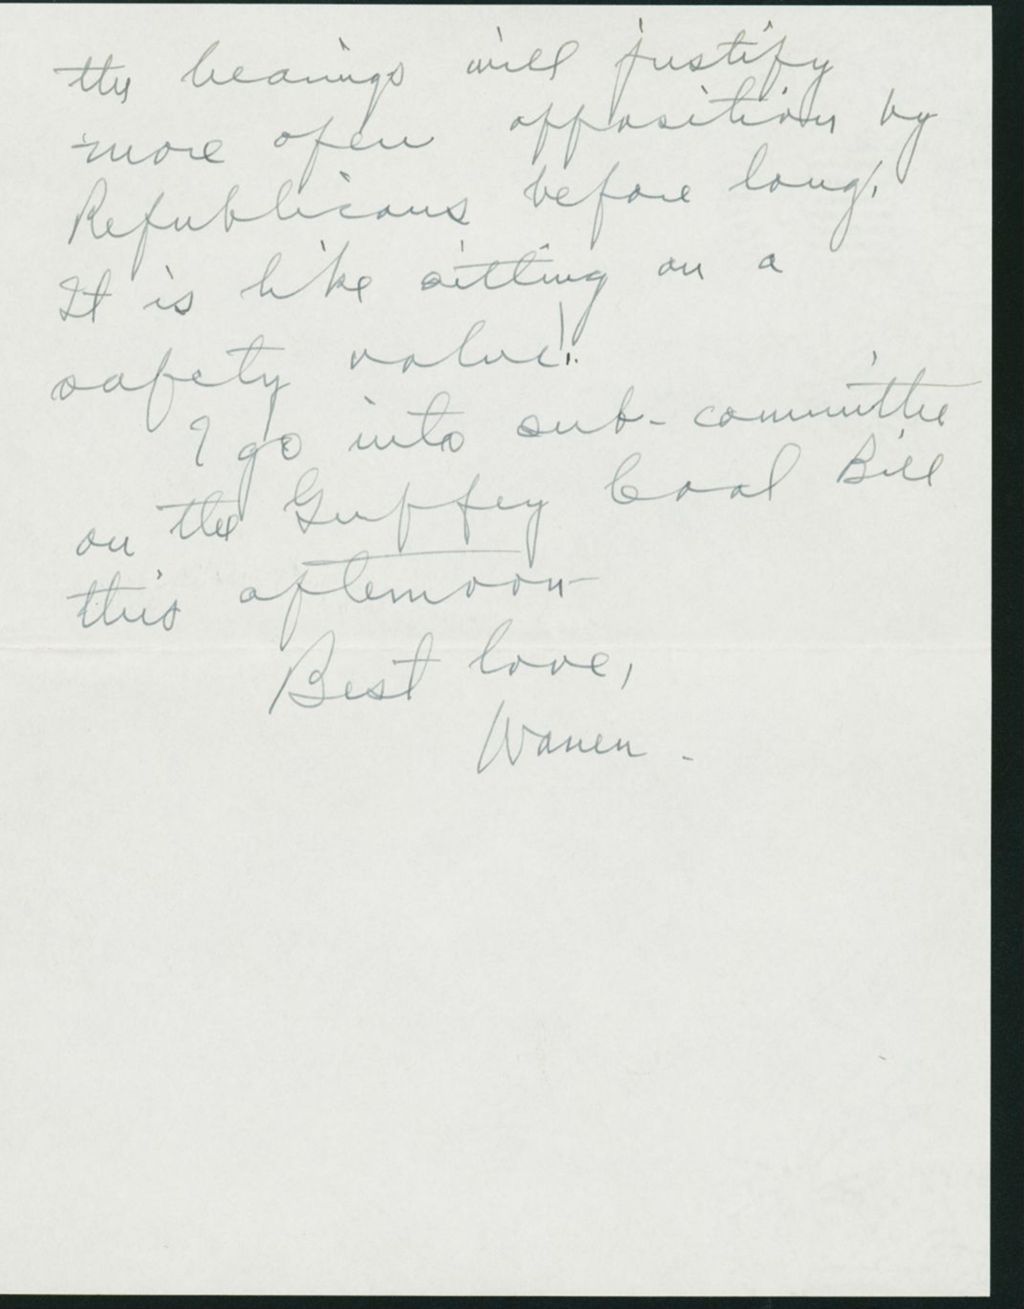 the hearings will justify
more open opposition by
Republicans before long.
It is like sitting on a
safety valve!
I go into sub-committee
on the Guffey Coal Bill
this afternoon
Best love,
Warren.